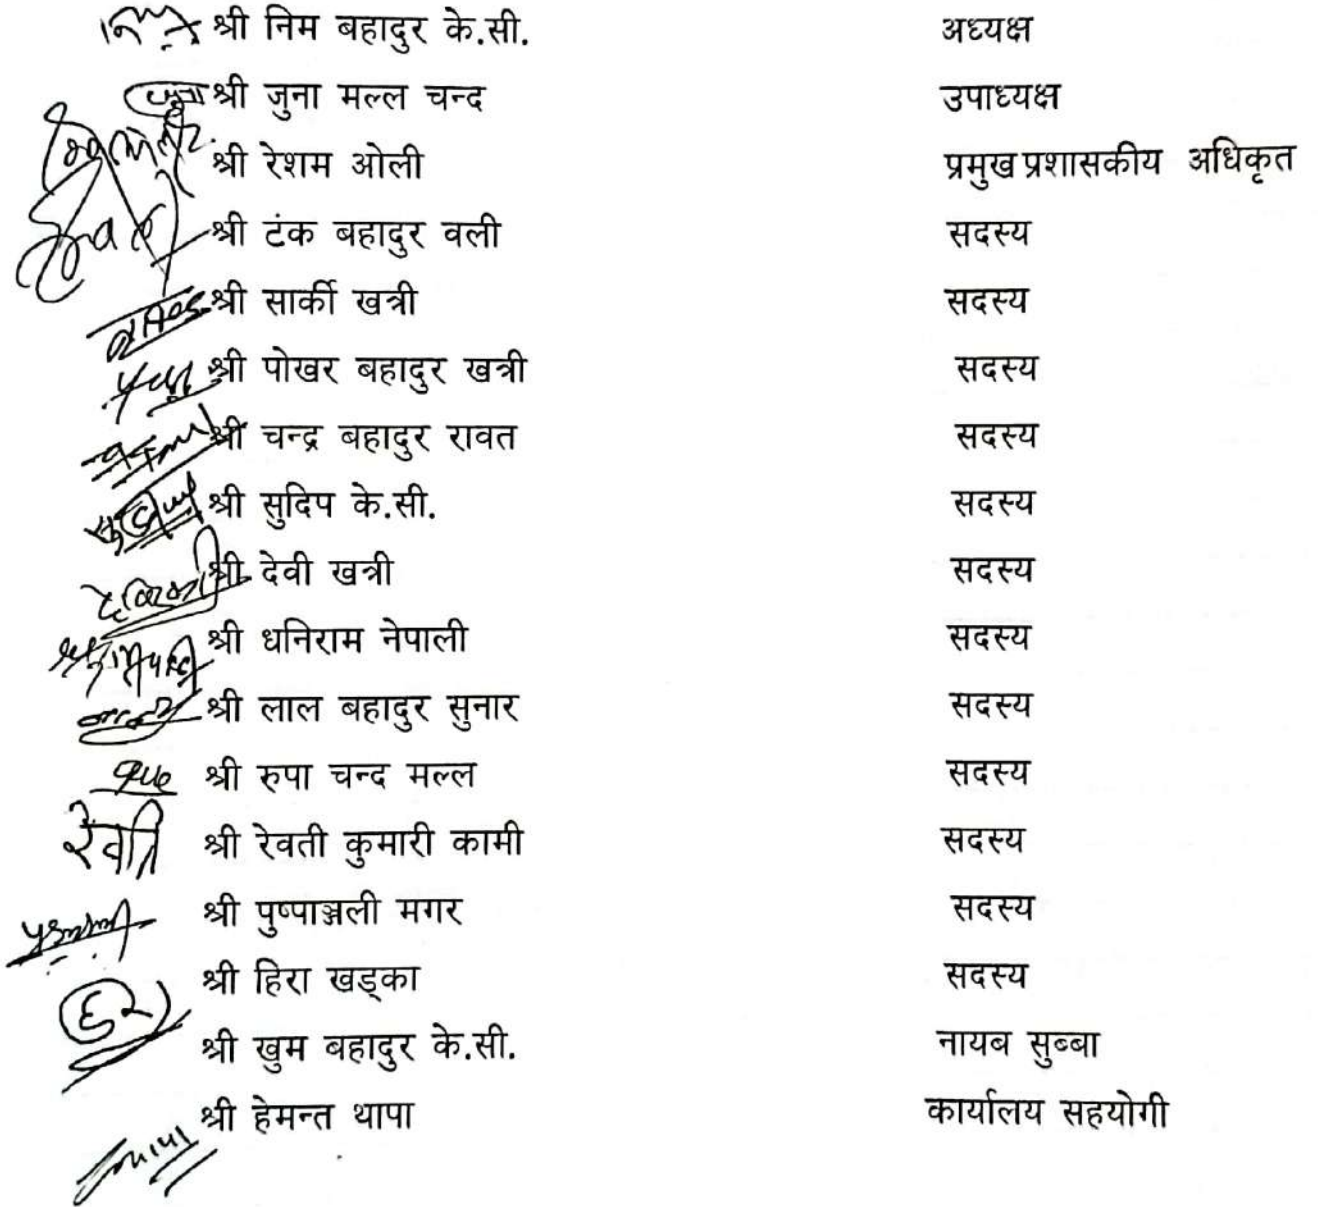 श्री निम बहादुर के.सी. अध्यक्ष
श्री जुना मल्ल चन्द उपाध्यक्ष
श्री रेशम ओली प्रमुख प्रशासकीय अधिकृत
श्री टंक बहादुर वली सदस्य
श्री सार्की खत्री सदस्य
श्री पोखर बहादुर खत्री सदस्य
श्री चन्द्र बहादुर रावत सदस्य
श्री सुदिप के.सी. सदस्य
श्री देवी खत्री सदस्य
श्री धनिराम नेपाली सदस्य
श्री लाल बहादुर सुनार सदस्य
श्री रुपा चन्द मल्ल सदस्य
रेवति श्री रेवती कुमारी कामी सदस्य
श्री पुष्पाञ्जली मगर सदस्य
श्री हिरा खड्का सदस्य
श्री खुम बहादुर के.सी. नायब सुब्बा
श्री हेमन्त थापा कार्यालय सहयोगी